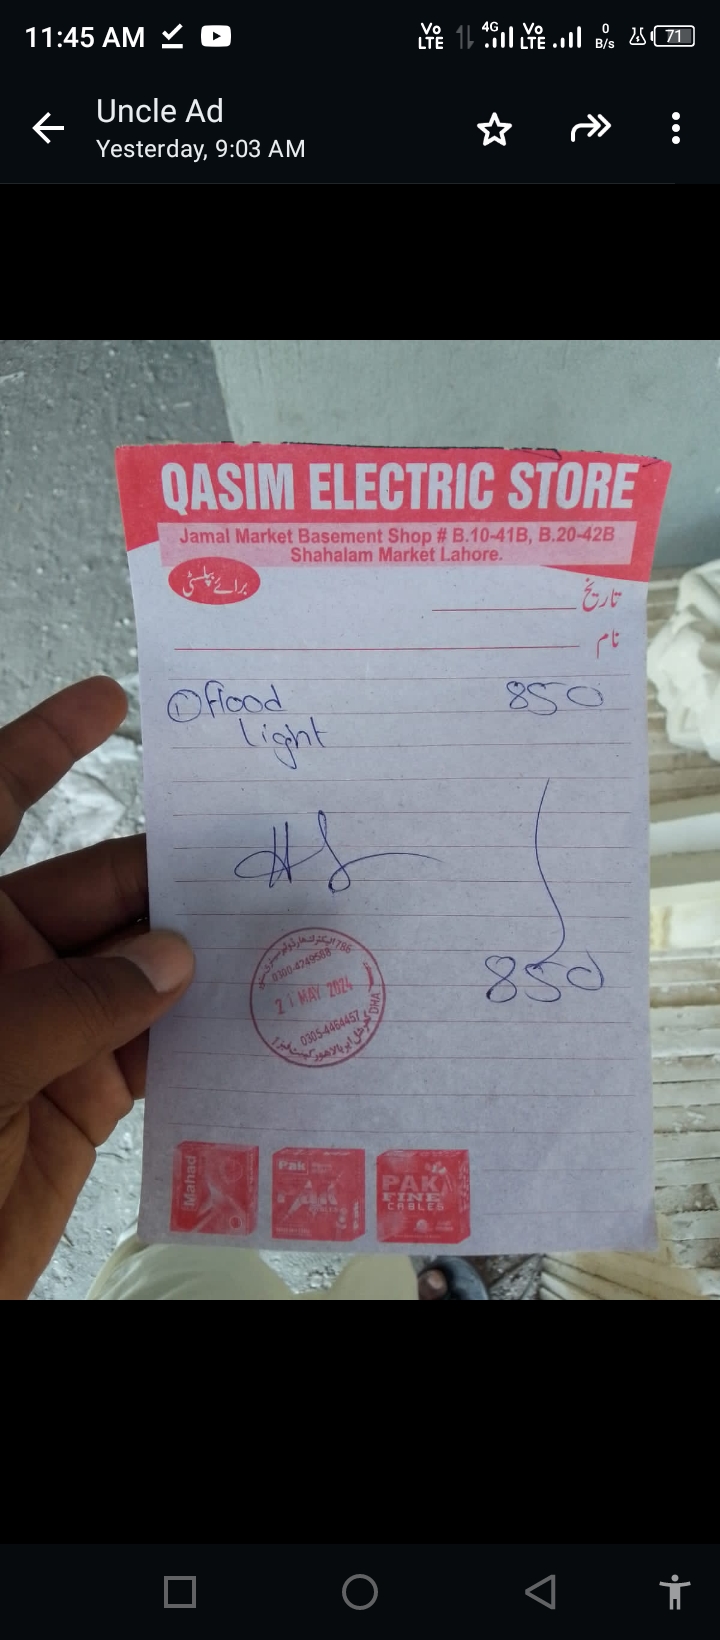 11:45 AM
Vo LTE 4G Vo LTE 0 B/s 71
Uncle Ad
Yesterday, 9:03 AM
QASIM ELECTRIC STORE
Jamal Market Basement Shop # B.10-41B, B.20-42B
Shahalam Market Lahore.
برائے پبلسٹی
تاریخ
نام
① flood 850
light
850
0300-4249508
21 MAY 2024
0305-4464457
DHA
Mahad
Pak
PAK
FINE
CABLES